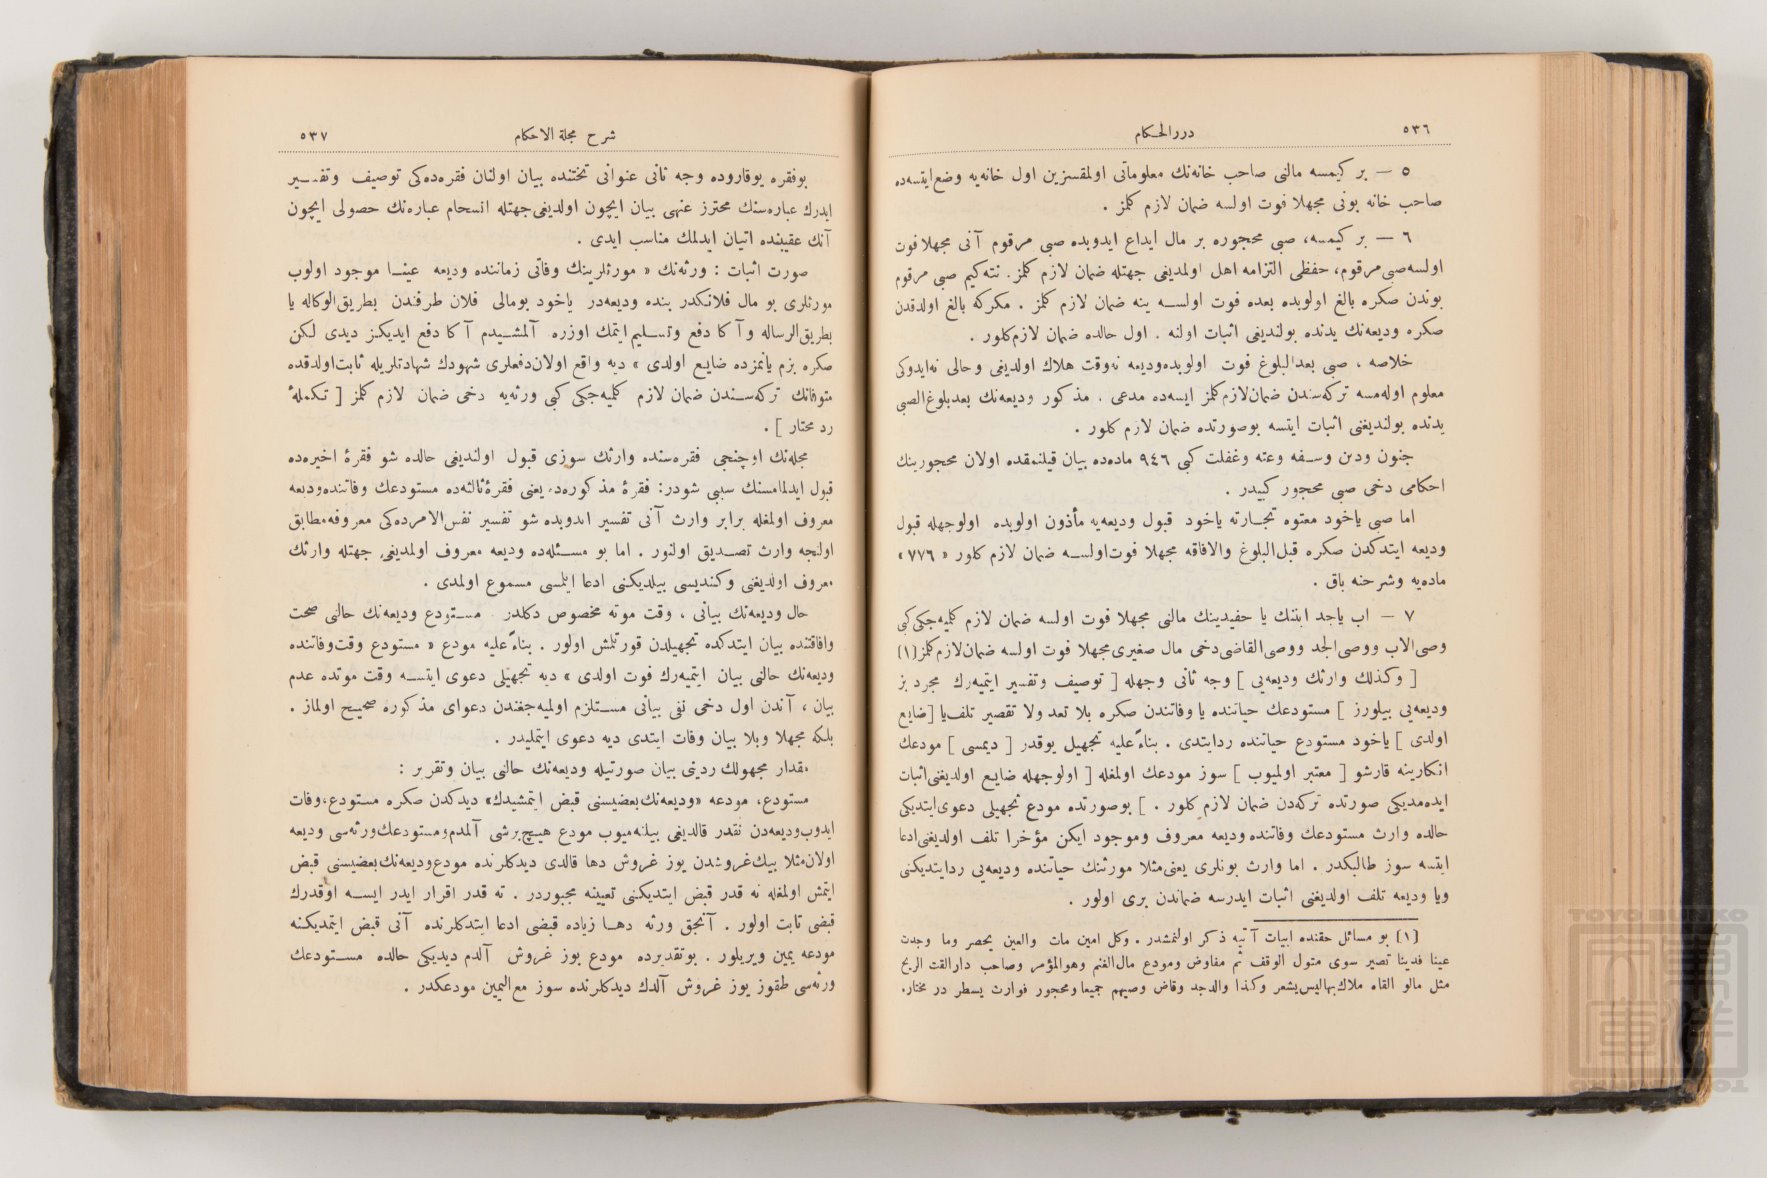 ٥٣٦
دررالحكام
٥ — بر كيمسه مالنى صاحب خانه‌نك معلوماتى اولمقسزين اول خانه‌يه وضع‌ايتسه‌ده
صاحب خانه بونى مجهلا فوت اولسه ضمان لازم كلمز .
٦ — بر كيمسه، صبى محجوره بر مال ايداع ايدوبده صبى مرقوم آنى مجهلا فوت
اولسه صبى مرقوم، حفظى التزامه اهل اولمديغى جهتله ضمان لازم كلمز. نته‌كيم صبى مرقوم
بوندن صكره بالغ اولوبده بعده فوت اولسه ينه ضمان لازم كلمز . مكركه بالغ اولدقدن
صكره وديعه‌نك يدنده بولنديغى اثبات اولنه . اول حالده ضمان لازم‌كلور .
خلاصه ، صبى بعدالبلوغ فوت اولوبده‌وديعه نه‌وقت هلاك اولديغى وحالى نه‌ايدوكى
معلوم اوله‌مسه تركه‌سندن ضمان‌لازم‌كلمز ايسه‌ده مدعى . مذكور وديعه‌نك بعدبلوغ‌الصبى
يدنده بولنديغنى اثبات ايتسه بوصورتده ضمان لازم كلور .
جنون ودين وسفه وعته وغفلت كبى ٩٤٦ ماده‌ده بيان قيلنمقده اولان محجورينك
احكامى دخى صبى محجور كبيدر .
اما صبى ياخود معتوه تجارته ياخود قبول وديعه‌يه مأذون اولوبده اولوجهله قبول
وديعه ايتدكدن صكره قبل‌البلوغ والافاقه مجهلا فوت‌اولسه ضمان لازم كلور « ٧٧٦ »
ماده‌يه وشرحنه باق .
٧ — اب ياجد ابنتك يا حفيدينك مالنى مجهلا فوت اولسه ضمان لازم كلميه‌جكى‌كبى
وصى‌الاب ووصى‌الجد ووصى‌القاضى‌دخى مال صغيرى‌مجهلا فوت اولسه ضمان‌لازم‌كلمز(١)
[ وكذلك وارثك وديعه‌يى ] وجه ثانى وجهله [ توصيف وتفسير ايتميه‌رك مجرد بز
وديعه‌يى بيلورز ] مستودعك حياتنده يا وفاتندن صكره بلا تعد ولا تقصير تلف‌يا [ضايع
اولدى ] ياخود مستودع حياتنده ردايتدى . بناءً عليه تجهيل يوقدر [ ديمسى ] مودعك
انكارينه قارشو [ معتبر اولميوب ] سوز مودعك اولمغله [ اولوجهله ضايع اولديغنى‌اثبات
ايده‌مديكى صورتده تركه‌دن ضمان لازم كلور . ] بوصورتده مودع تجهيلى دعوى‌ايتديكى
حالده وارث مستودعك وفاتنده وديعه معروف وموجود ايكن مؤخرا تلف اولديغنى‌ادعا
ايتسه سوز طالبكدر . اما وارث بونلرى يعنى‌مثلا مورثنك حياتنده وديعه‌يى ردايتديكنى
ويا وديعه تلف اولديغنى اثبات ايدرسه ضماندن برى اولور .
(١) بو مسائل حقنده ابيات آتيه ذكر اولنمشدر . وكل امين مات والعين يحصر وما وجدت
عينا فدينا تصير سوى متولى الوقف ثم مفاوض ومودع مال‌الغنم وهوالمؤمر وصاحب دارالقت الريح
مثل مالو القاه ملاك‌بهاليس‌يشعر وكذا والدجد وقاض وصيهم جميعا ومحجور فوارث يسطر در مختار.
شرح مجلة الاحكام
٥٣٧
بوفقره يوقاروده وجه ثانى عنوانى تحتنده بيان اولنان فقره‌ده‌كى توصيف وتفسير
ايدرك عباره‌سنك محترز عنهى بيان ايچون اولديغى‌جهتله انسجام عباره‌نك حصولى ايچون
آنك عقبنده اتيان ايدلمك مناسب ايدى .
صورت اثبات : ورثه‌نك « مورثلرينك وفاتى زماننده وديعه عينا موجود اولوب
مورثلرى بو مال فلانكدر بنده وديعه‌در ياخود بومالى فلان طرفندن بطريق‌الوكاله يا
بطريق‌الرساله وآ كا دفع وتسليم ايتمك اوزره آلمشيدم آ كا دفع ايديكز ديدى لكن
صكره بزم يانمزده ضايع اولدى » ديه واقع اولان‌دفعلرى شهودك شهادتلريله ثابت‌اولدقده
متوفانك تركه‌سندن ضمان لازم كلميه‌جكى كبى ورثه‌يه دخى ضمان لازم كلمز [ تكملهٔ
رد محتار ] .
مجله‌نك اوچنجى فقره‌سنده وارثك سوزى قبول اولنديغى حالده شو فقرهٔ اخيره‌ده
قبول ايدلمامسنك سببى شودر: فقرهٔ مذكوره‌ده يعنى فقرهٔ‌ثالثه‌ده مستودعك وفاتنده‌وديعه
معروف اولمغله برابر وارث آنى تفسير ايدوبده شو تفسير نفس‌الامرده‌كى معروفه‌مطابق
اولنجه وارث تصديق اولنور . اما بو مسئله‌ده وديعه معروف اولمديغى جهتله وارثك
معروف اولديغنى وكنديسى بيلديكنى ادعا ايلمسى مسموع اولمدى .
حال وديعه‌نك بيانى ، وقت موته مخصوص دكلدر مستودع وديعه‌نك حالنى صحت
وافاقتنده بيان ايتدكده تجهيلدن قورتلمش اولور . بناءً عليه مودع « مستودع وقت‌وفاتنده
وديعه‌نك حالنى بيان ايتميه‌رك فوت اولدى » ديه تجهيلى دعوى ايتسه وقت موتده عدم
بيان ، آندن اول دخى نفى بيانى مستلزم اولميه‌جغندن دعواى مذكوره صحيح اولماز .
بلكه مجهلا وبلا بيان وفات ايتدى ديه دعوى ايتمليدر .
مقدار مجهولك ردينى بيان صورتيله وديعه‌نك حالنى بيان وتقرير :
مستودع، مودعه «وديعه‌نك‌بعضيسنى قبض ايتمشيدك» ديدكدن صكره مستودع،وفات
ايدوب‌وديعه‌دن نقدر قالديغى بيلنه‌ميوب مودع هيچ‌برشى آلمدم‌ومستودعك‌ورثه‌سى وديعه
اولان‌مثلا بيك‌غروشدن يوز غروش دها قالدى ديدكلرنده مودع‌وديعه‌نك‌بعضيسنى قبض
ايتمش اولمغله نه قدر قبض ايتديكنى تعيينه مجبوردر . نه قدر اقرار ايدر ايسه اوقدرك
قبضى ثابت اولور . آنجق ورثه دها زياده قبضى ادعا ايتدكلرنده آنى قبض ايتمديكنه
مودعه يمين ويريلور . بوتقديرده مودع يوز غروش آلدم ديديكى حالده مستودعك
ورثه‌سى طقوز يوز غروش آلدك ديدكلرنده سوز مع‌اليمين مودعكدر .
TOYO BUNKO